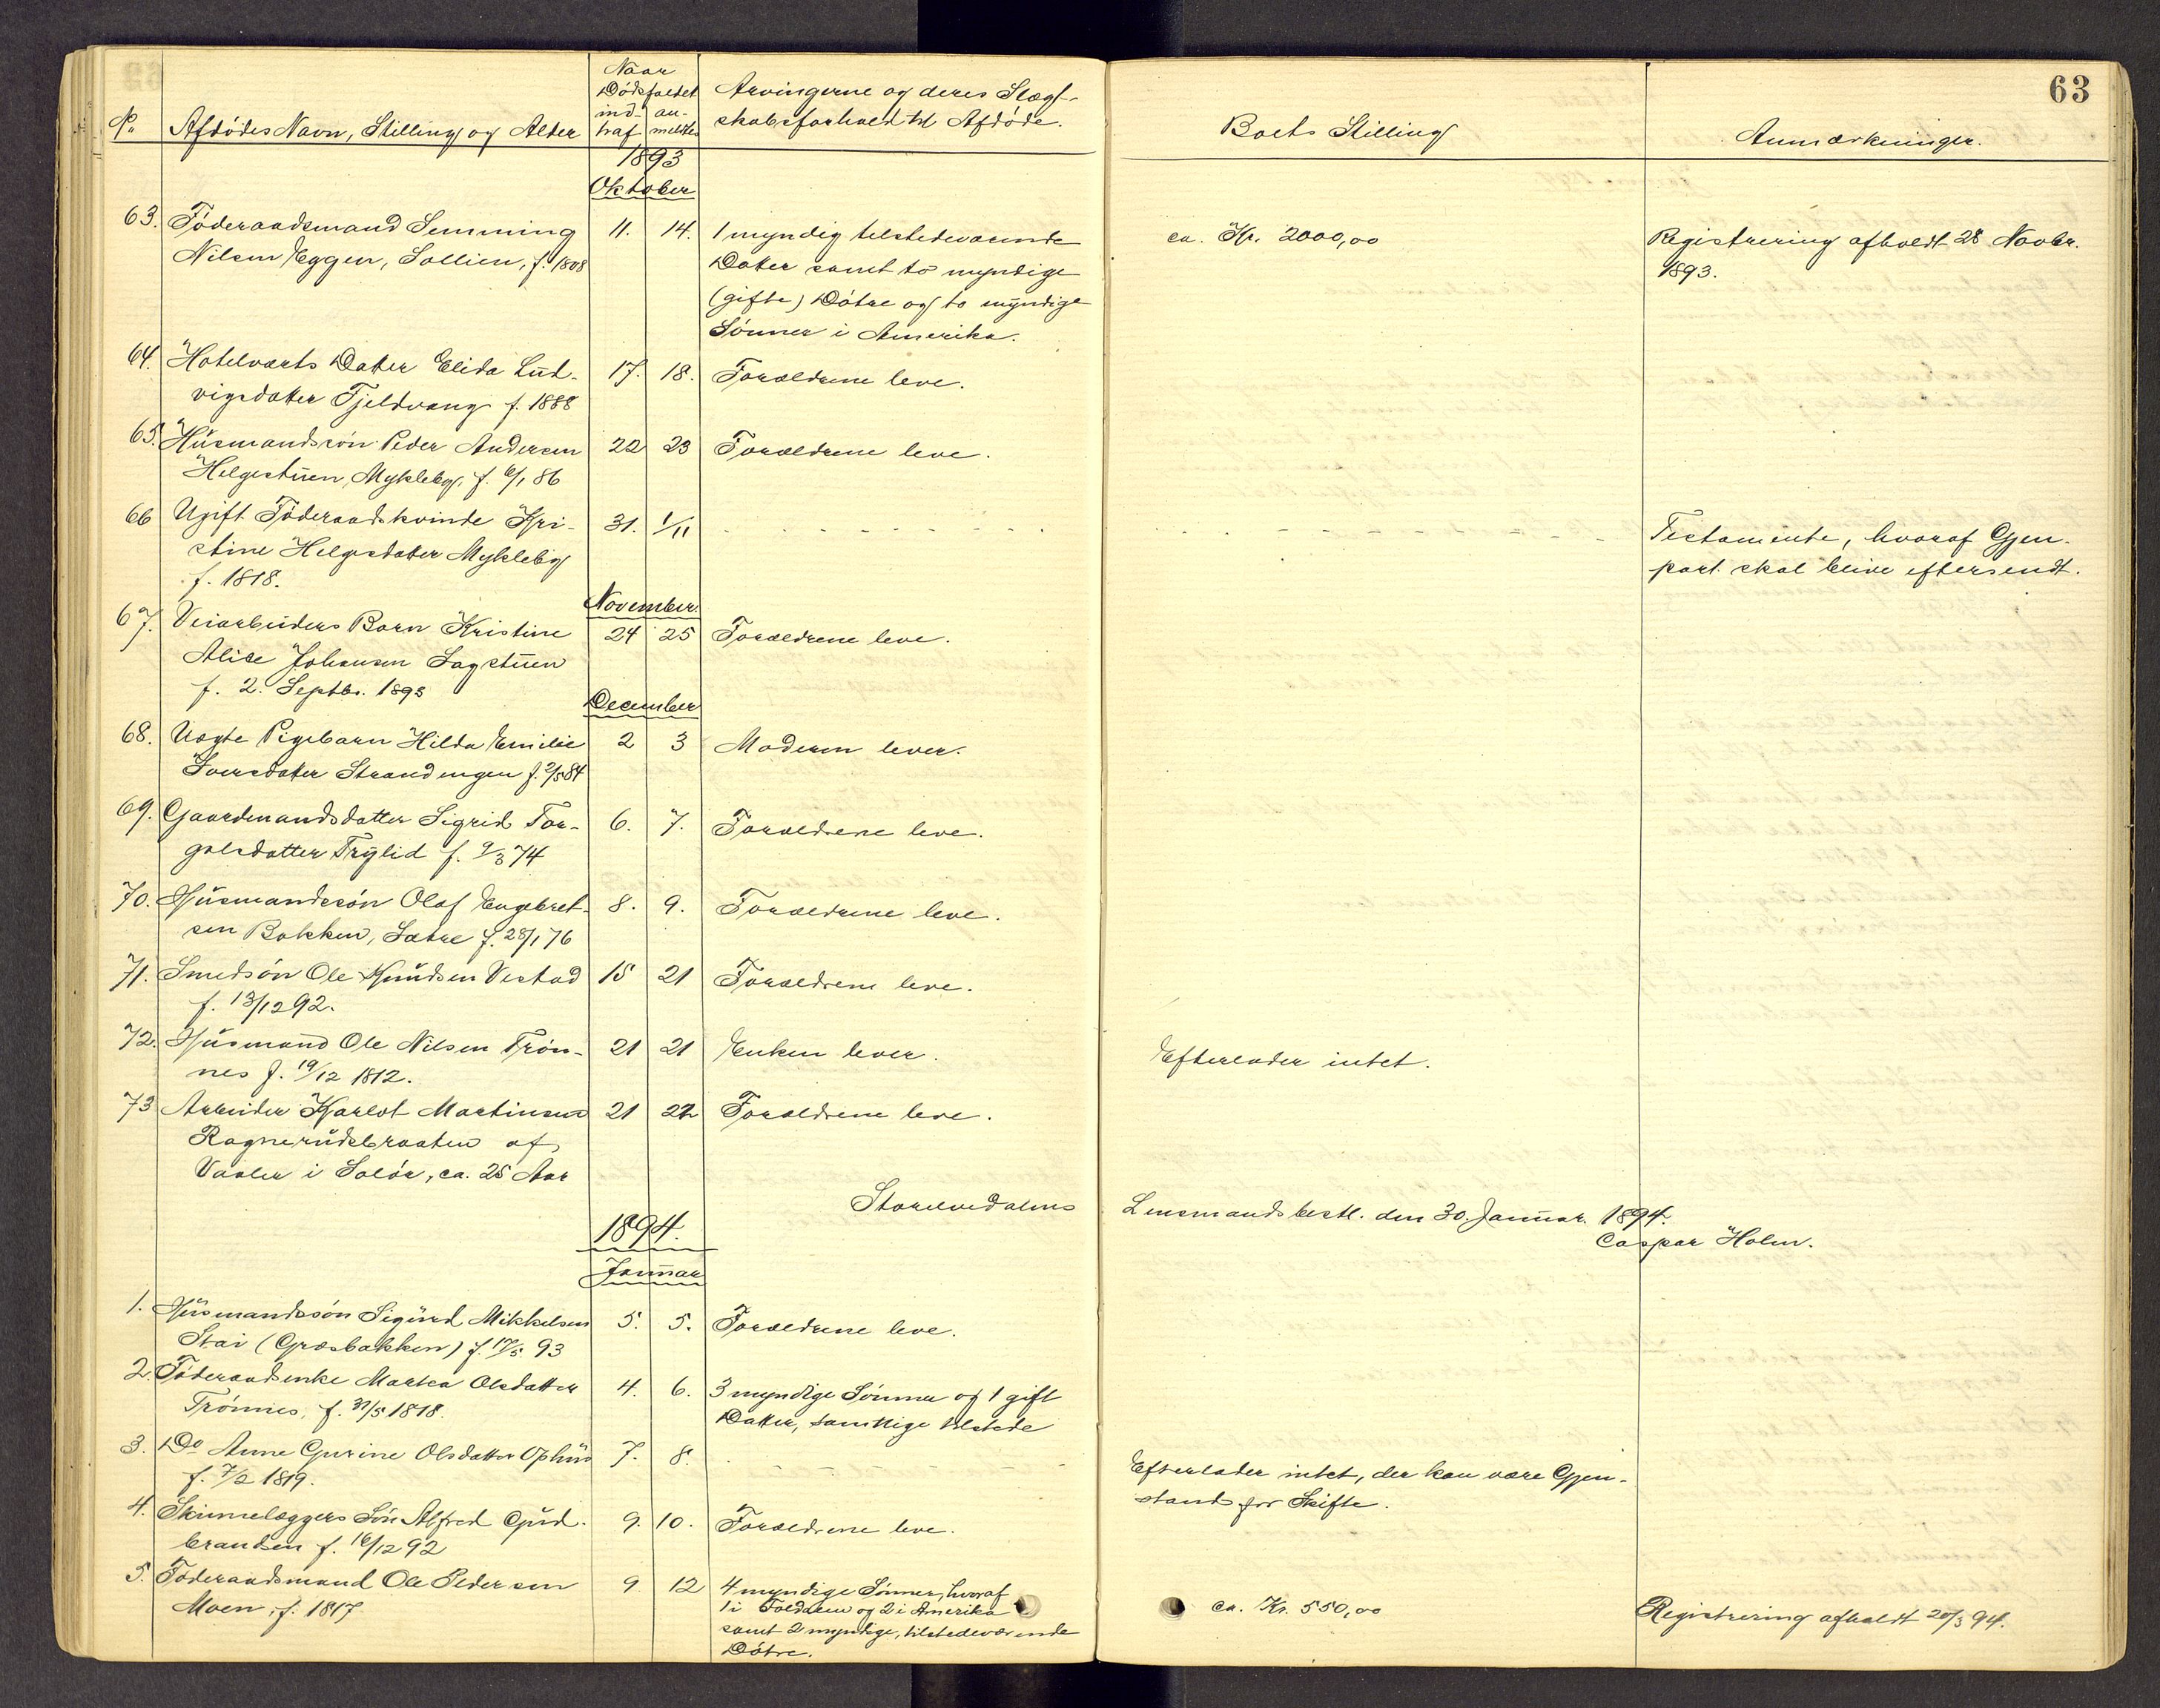 63
Naar
Dødsfaldet
ind- an-
traf meldtes
No Afdødes Navn, Stilling og Alder
Arvingerne og deres Slægt-
skabsforhold til Afdøde.
Boets Stilling
Anmærkninger.
1893
Oktober
63. Föderaadsmand Semming 11. 14. 1 myndig tilstedeværende ca. Kr. 2000,00 Registrering afholdt 28 Novbr.
Nilsen Eggen, Sollien, f. 1808 Datter samt to myndige 1893.
(gifte) Døtre og to myndige
Sønner i Amerika.
64. Hotelværts Datter Elida Lud- 17. 18. Forældrene leve.
vigsdatter Fjeldvang f. 1888
65. Husmandssøn Peder Andersen 22 23 Forældrene leve.
Helgestuen, Mykleby, f. 6/1 86
66 Ugift Föderaadskvinde Kri- 31. 1/11 Testamente, hvoraf Gjen-
stine Helgesdatter Mykleby part skal blive eftersendt.
f. 1818.
November.
67. Veiarbeiders Barn Kristine 24 25 Forældrene leve.
Alise Johansen Sagstuen
f. 2. Septbr. 1893
December
68. Uægte Pigebarn Hilda Emilie 2 3 Moderen lever.
Iversdatter Strandengen f. 2/5 84
69. Gaardmandsdatter Sigrid Tor- 6. 7. Forældrene leve.
galsdatter Trylid f. 9/3 74
70. Husmandssøn Olaf Engebret- 8. 9. Forældrene leve.
sen Bakken, Sætre f. 28/1 76
71. Smedsøn Ole Knudsen Vestad 15 21 Forældrene leve.
f. 13/12 92.
72. Husmand Ole Nilsen Trøn- 21 21 Enken lever. Efterlader intet.
nes f. 19/12 1812.
73 Arbeider Karlot Martinsen 21 22 Forældrene leve.
Ragnerudsbraaten af
Vaaler i Solør, ca. 25 Aar
Storelvedalens Lensmandsbestl. den 30. Januar. 1894.
Caspar Holm.
1894.
Januar
1. Husmandssøn Sigurd Mikkelsen 5. 5. Forældrene leve.
Stai (Græsbakken) f. 17/5 93
2. Föderaadsenke Martea Olsdatter 4. 6. 3 myndige Sønner og 1 gift
Trønnes, f. 31/5 1818. Datter, samtlige tilstede
3. Do Anne Gurine Olsdatter Ophus 7. 8. Efterlader intet, der kan være Gjen-
f. 7/2 1819. stand for Skifte.
4. Skinnelæggers Søn Alfred Gud- 9. 10. Forældrene leve.
brandsen f. 16/12 92
5. Föderaadsmand Ole Pedersen 9 12 4 myndige Sønner, hvoraf ca. Kr. 550,00 Registrering afholdt 20/3 94.
Moen, f. 1817 1 i Foldalen og 2 i Amerika
samt 2 myndige, tilstedeværende
Døtre.